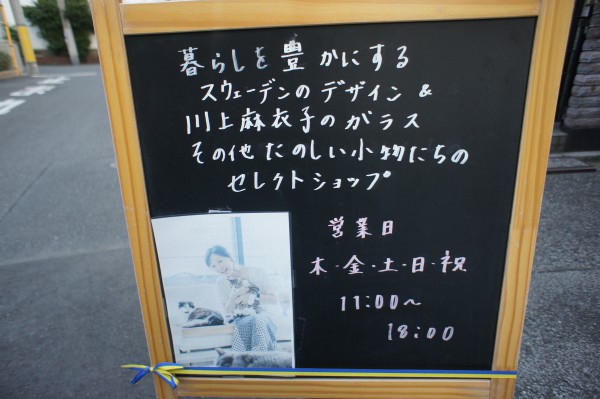 暮らしを豊かにする
スウェーデンのデザイン&
川上麻衣子のガラス
その他たのしい小物たちの
セレクトショップ
営業日
木・金・土・日・祝
11:00〜
18:00